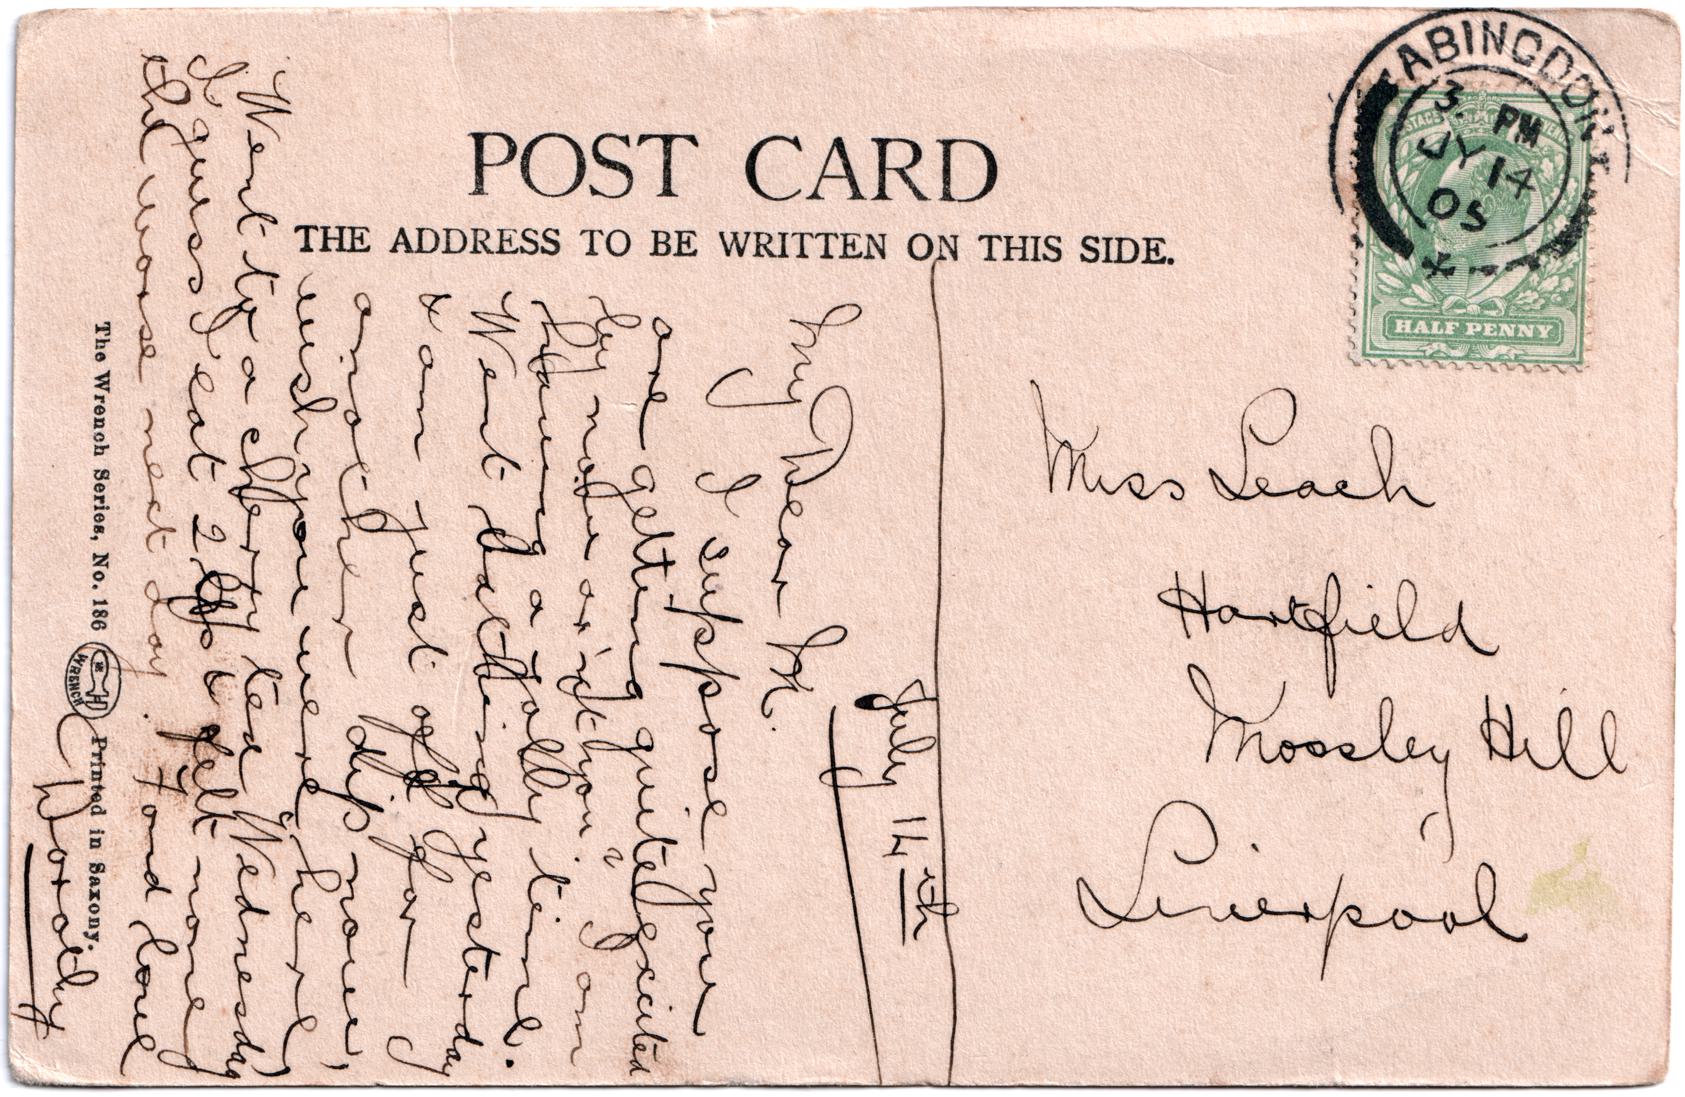 POST CARD
THE ADDRESS TO BE WRITTEN ON THIS SIDE.
ABINGDON
3. PM
JY 14
05
HALF PENNY
Miss Leach
Hartfield
Mossley Hill
Liverpool
July 14th
My Dear M.
I suppose you
are getting quite excited
by now arn't you? I am
Having a jolly time.
Went bathing yesterday
& am just off for
another dip now,
wish you were here,
Went to a cherry tea Wednesday
I guess I eat 2 & felt none
the worse next day. Fond love
Dorothy
The Wrench Series, No. 186
WRENCH
Printed in Saxony.